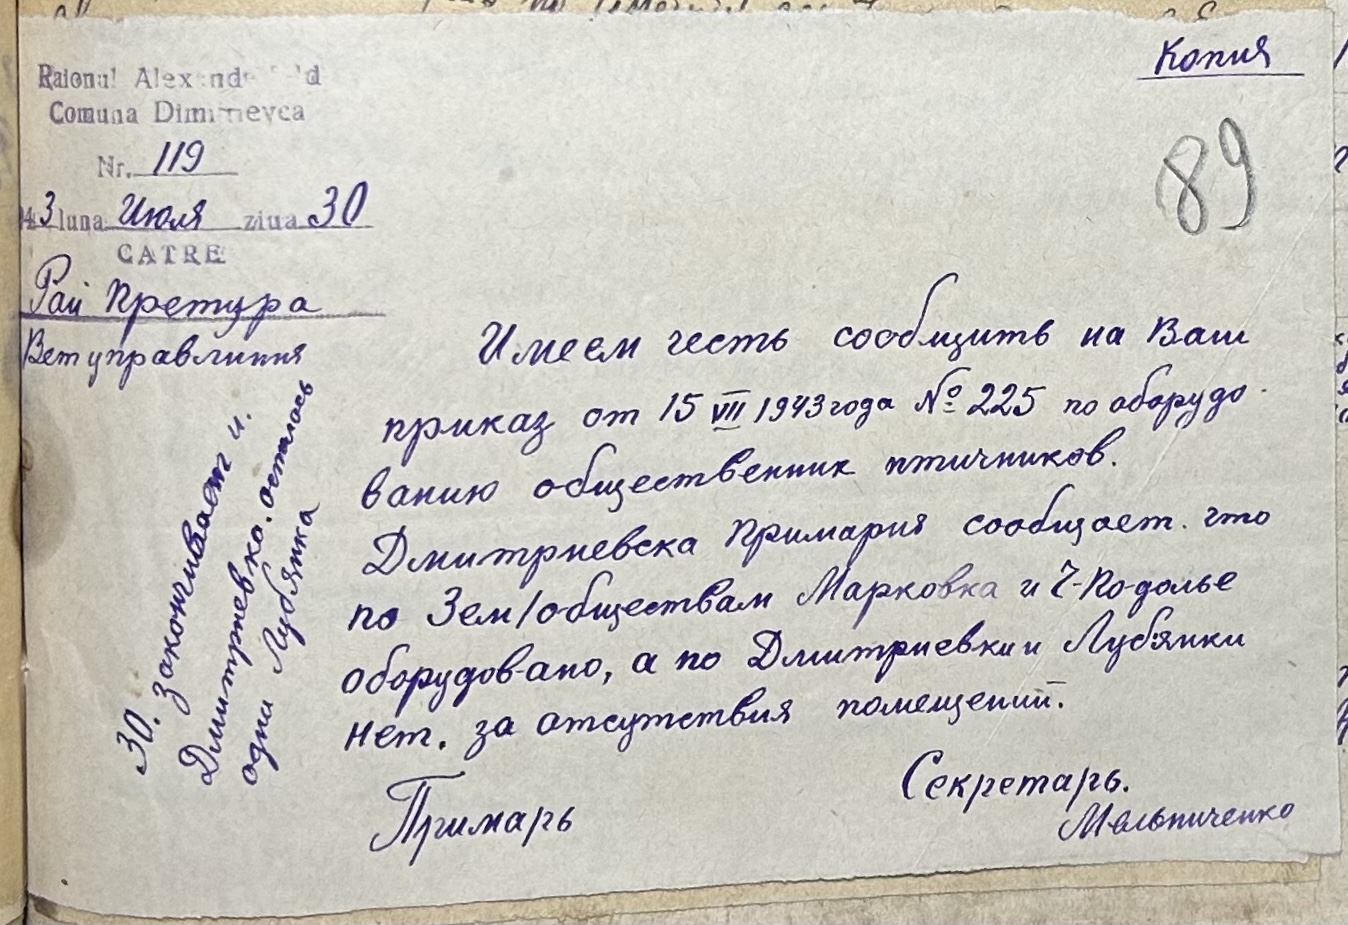 Копия
89
Raionul Alexanderfeld
Comuna Dimitrievca
Nr. 119
943 luna Июля ziua 30
CATRE
Рай Претура
Ветуправления
Имеем честь сообщить на Ваш
приказ от 15 VII 1943 года № 225 по оборудо-
ванию общественник птичников.
Дмитриевска Примария сообщает. что
по Зем/обществам Марковка и Ч-Подолье
оборудовано, а по Дмитриевки и Лубянки
нет. за отсутствия помещений.
Примарь
Секретарь.
Мельниченко
30. заканчивает и.
Дмитриевка. осталось
одна Лубянка